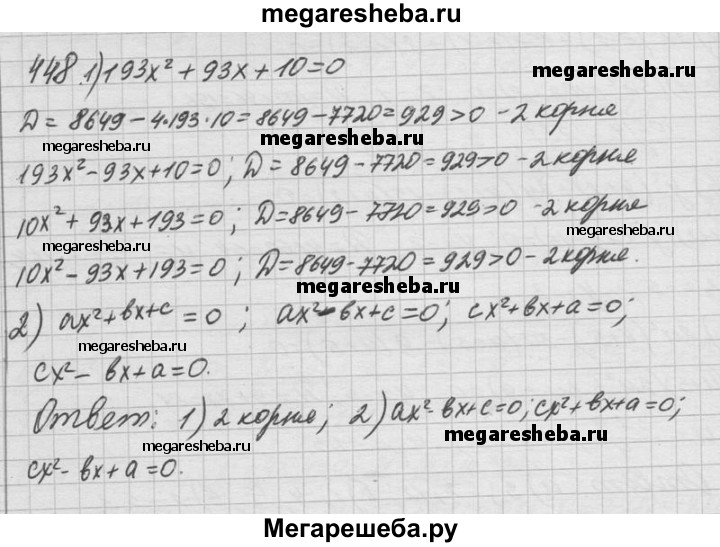 megaresheba.ru
448.1) 193x² + 93x + 10 = 0
megaresheba.ru
D = 8649 - 4·193·10 = 8649 - 7720 = 929 > 0 - 2 корня
megaresheba.ru
megaresheba.ru
193x² - 93x + 10 = 0; D = 8649 - 7720 = 929 > 0 - 2 корня
10x² + 93x + 193 = 0; D = 8649 - 7720 = 929 > 0 - 2 корня
megaresheba.ru
megaresheba.ru
10x² - 93x + 193 = 0; D = 8649 - 7720 = 929 > 0 - 2 корня.
2) ax² + вx + c = 0; ax² - вx + c = 0; cx² + вx + a = 0;
megaresheba.ru
megaresheba.ru
cx² - вx + a = 0.
Ответ: 1) 2 корня; 2) ax² - вx + c = 0; cx² + вx + a = 0;
megaresheba.ru
megaresheba.ru
cx² - вx + a = 0.
Мегарешеба.ру